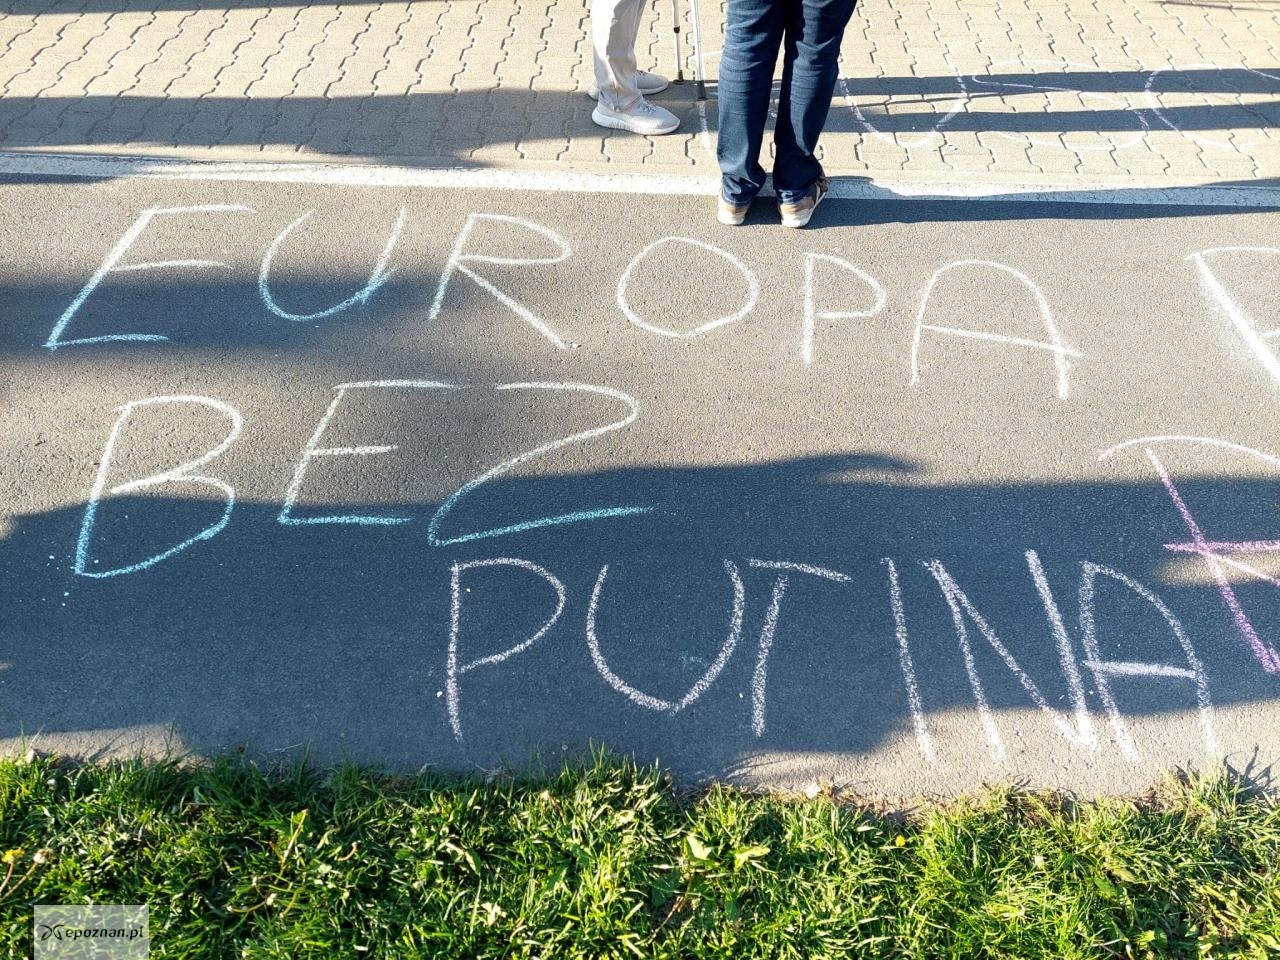 EUROPA
BEZ
PUTINA
epoznan.pl